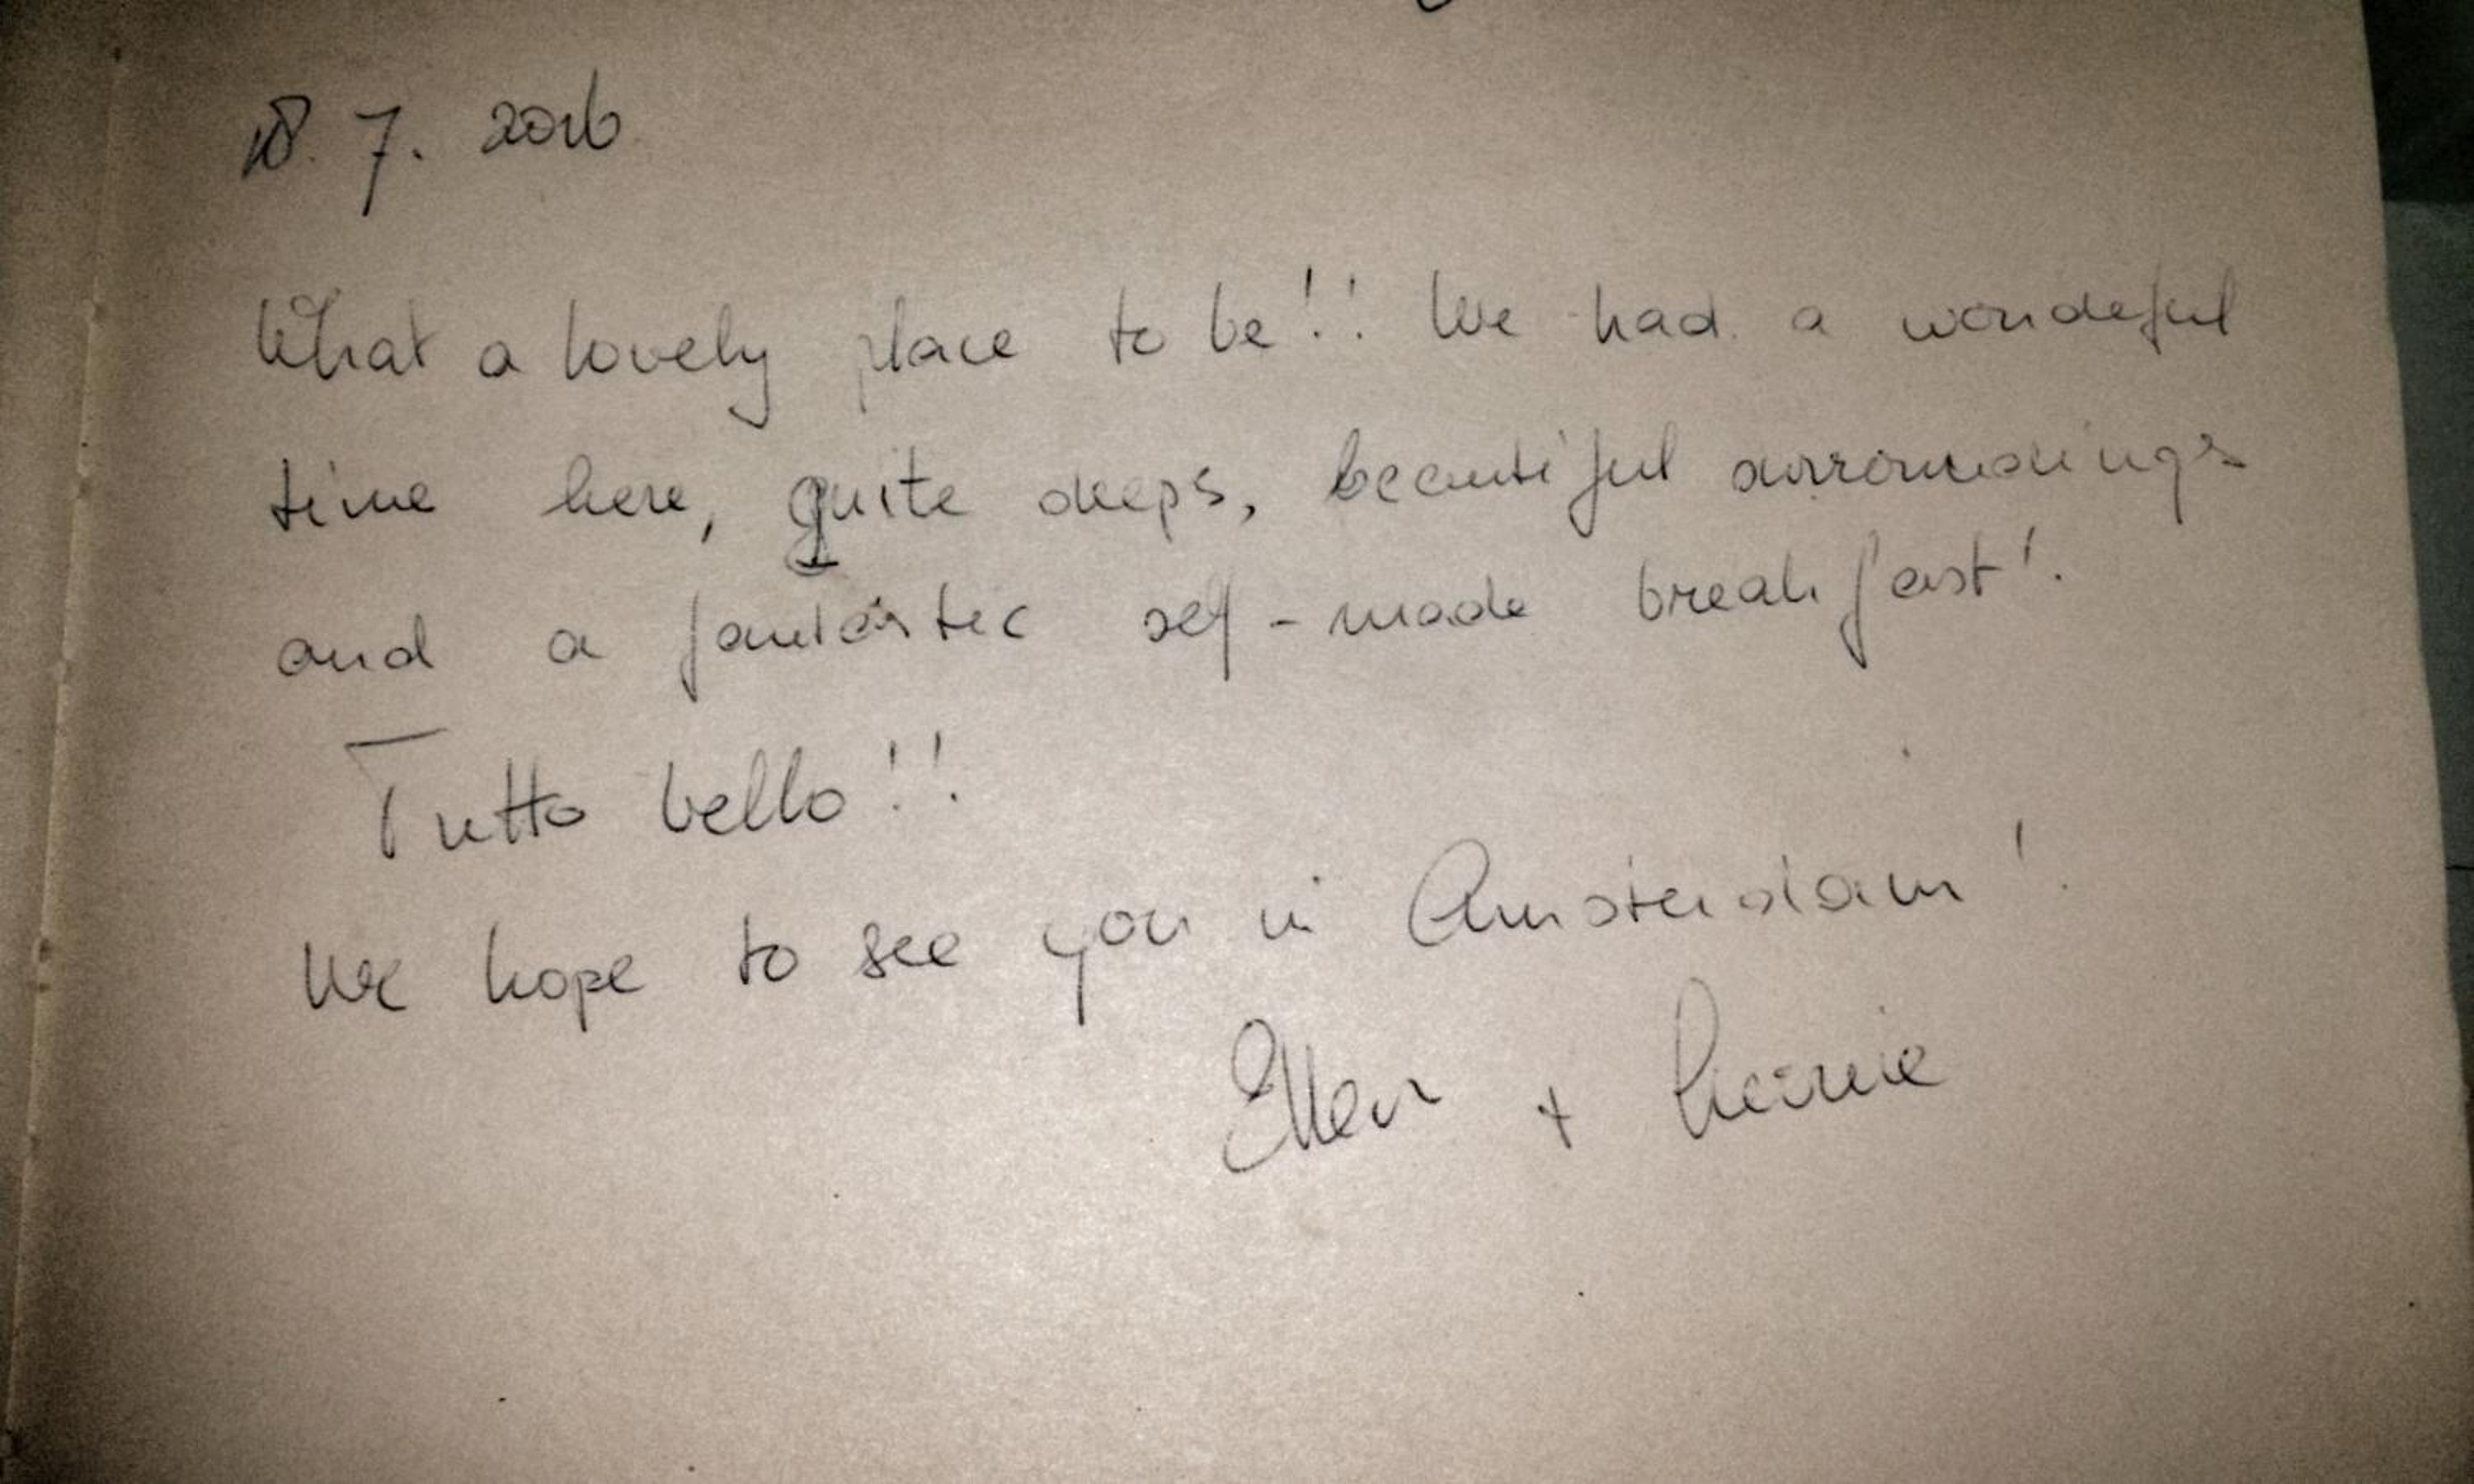 18. 7. 2016
What a lovely place to be!! We had a wondeful
time here, quite sleeps, beautiful surroundings
and a fantastic self-made breakfast!
Tutto bello!!
We hope to see you in Amsterdam!
Ellen +